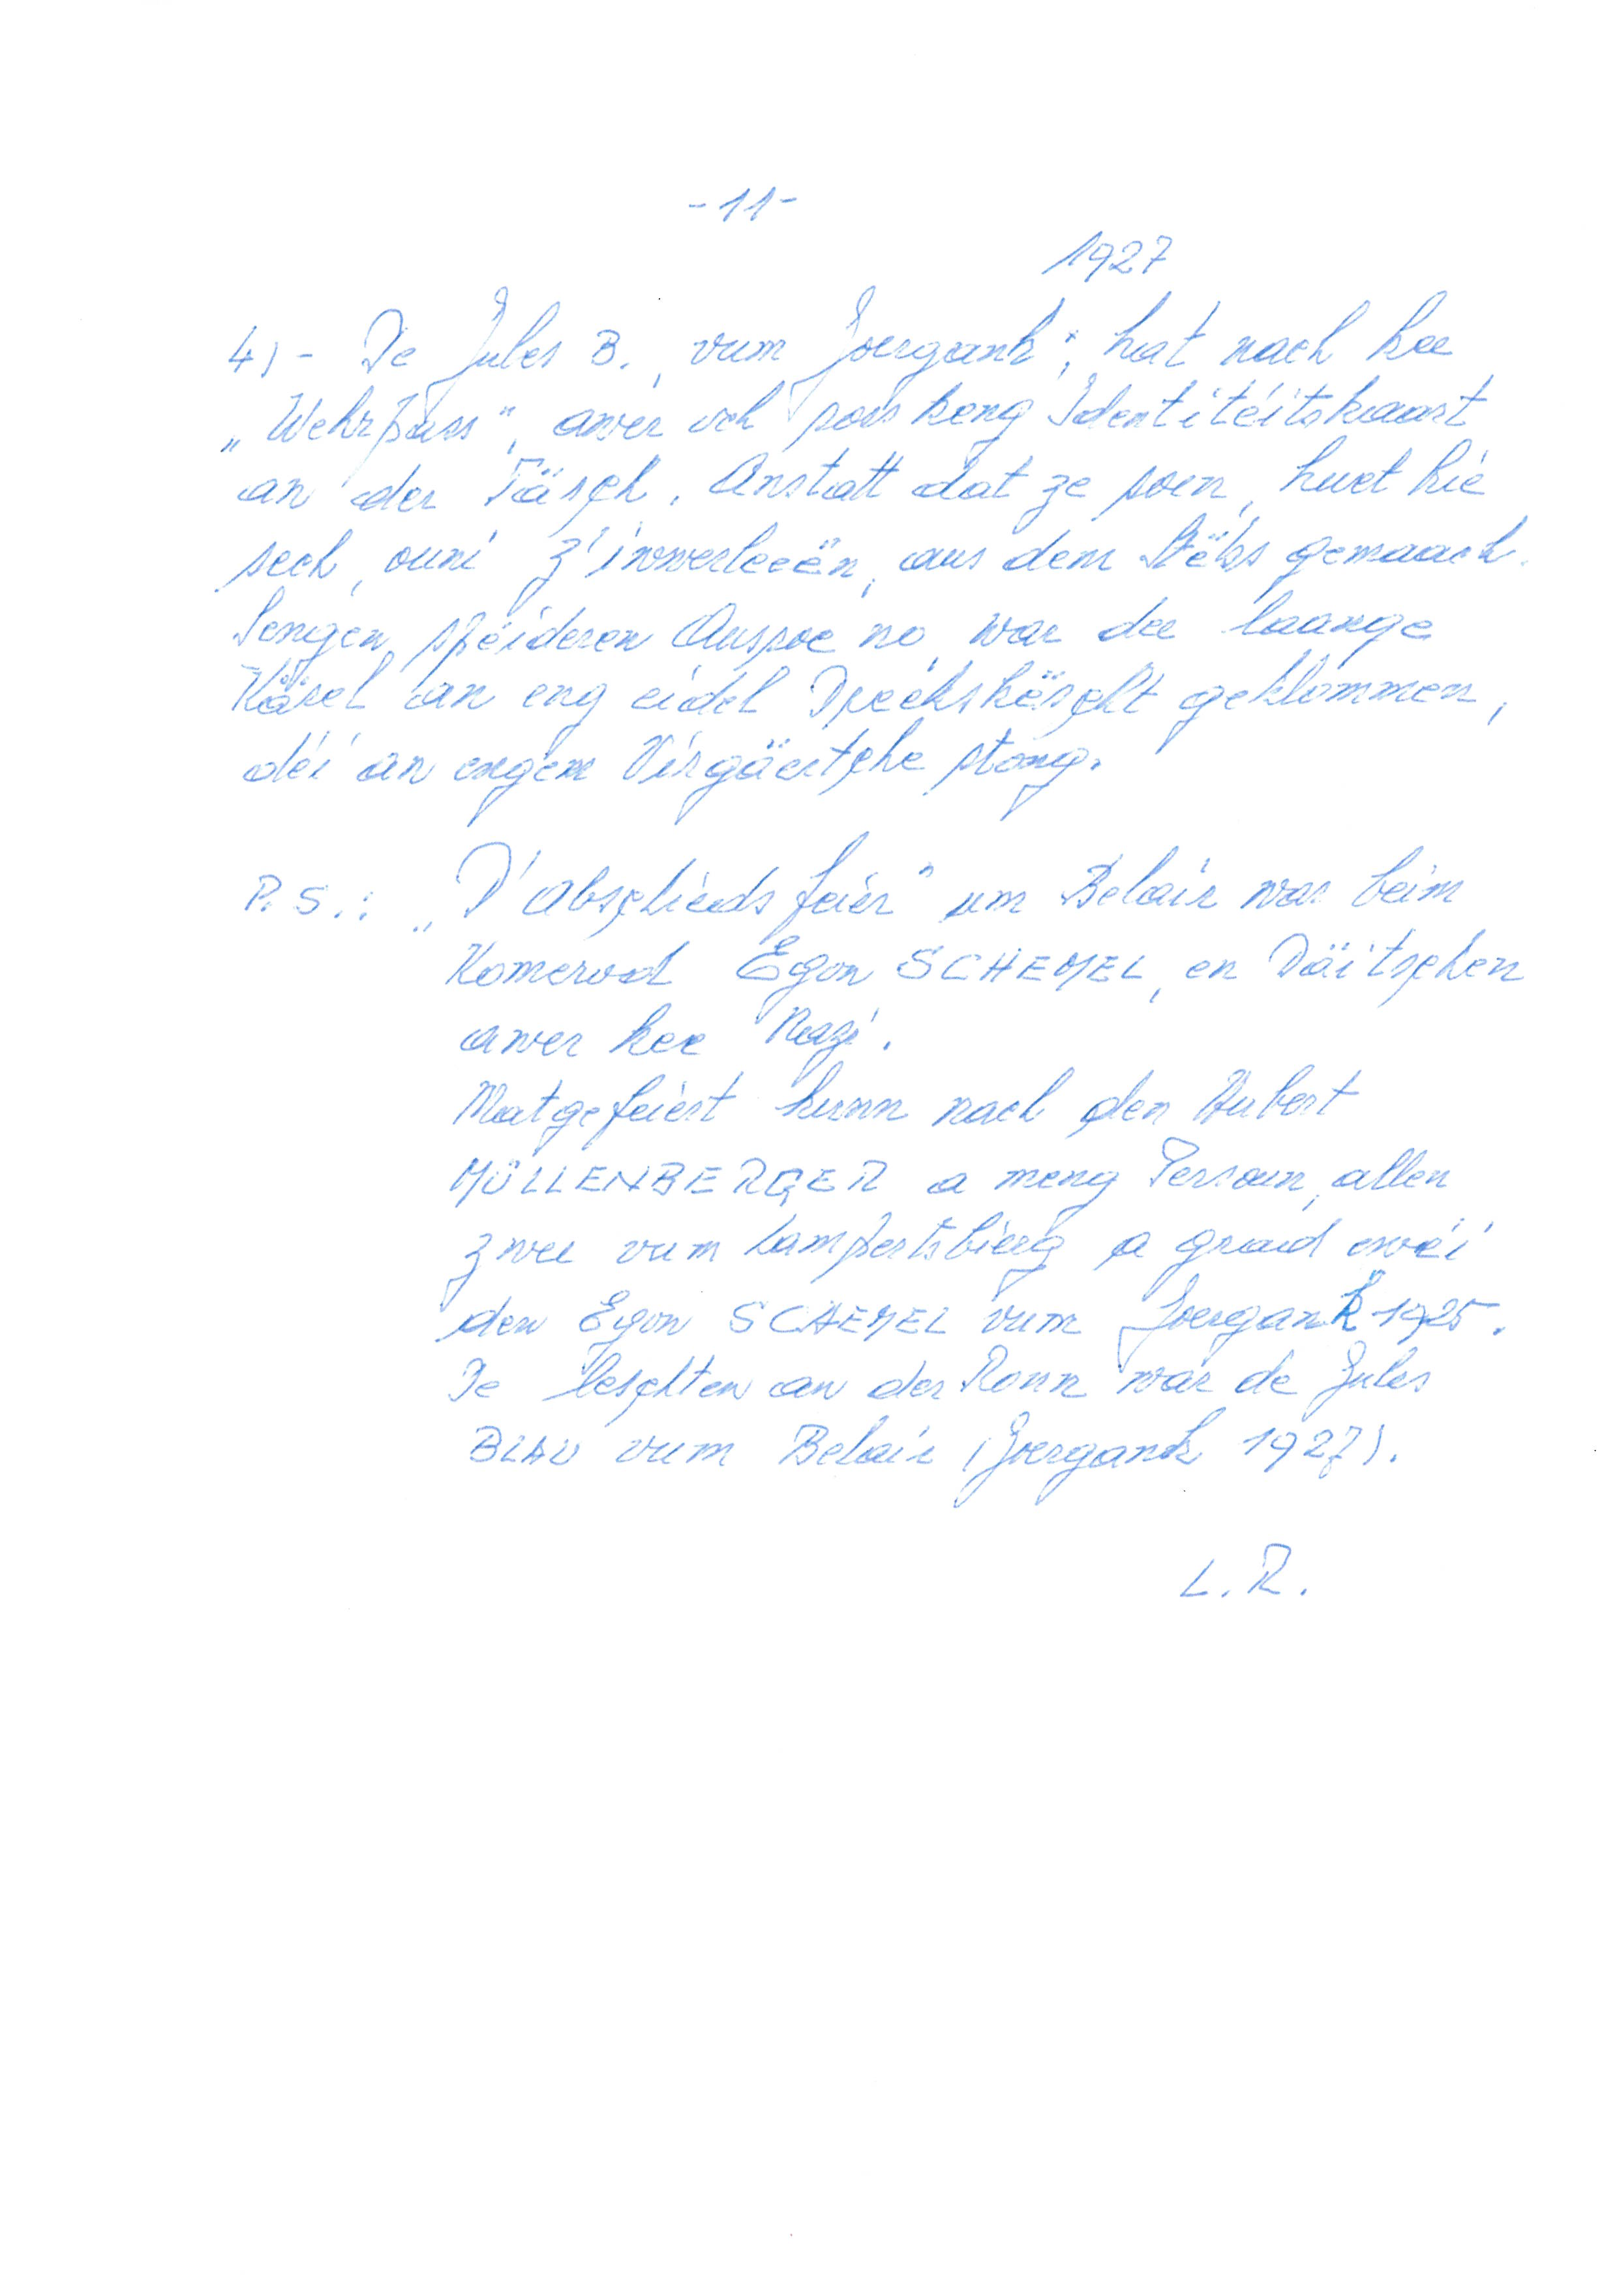 -11-
1927
4) - De Jules B., vum Joergank, hat nach kee
„Wehrpass", awer och soss keng Identitéitskaart
an der Täsch. Anstatt dat ze soen, huet hie
sech, ouni z'iwwerleeën, aus dem Stëbs gemaach.
Sengen spéideren Ausoe no, war dee laange
Kärel an eng eidel Dreckskëscht geklommen,
déi an engem Virgäertche stong.
P.S.: „D'Abschiedsfeier" um Belair war beim
Komerod Egon SCHEMEL, en Däitschen
awer kee Nazi.
Matgefeiert hunn nach den Hubert
MÜLLENBERGER a meng Persoun, allen
zwee vum Lampertsbierg a graad ewéi
den Egon SCHEMEL vum Joergank 1925.
De leschten an der Ronn war de Jules
BLAU vum Belair (Joergank 1927).
L.R.